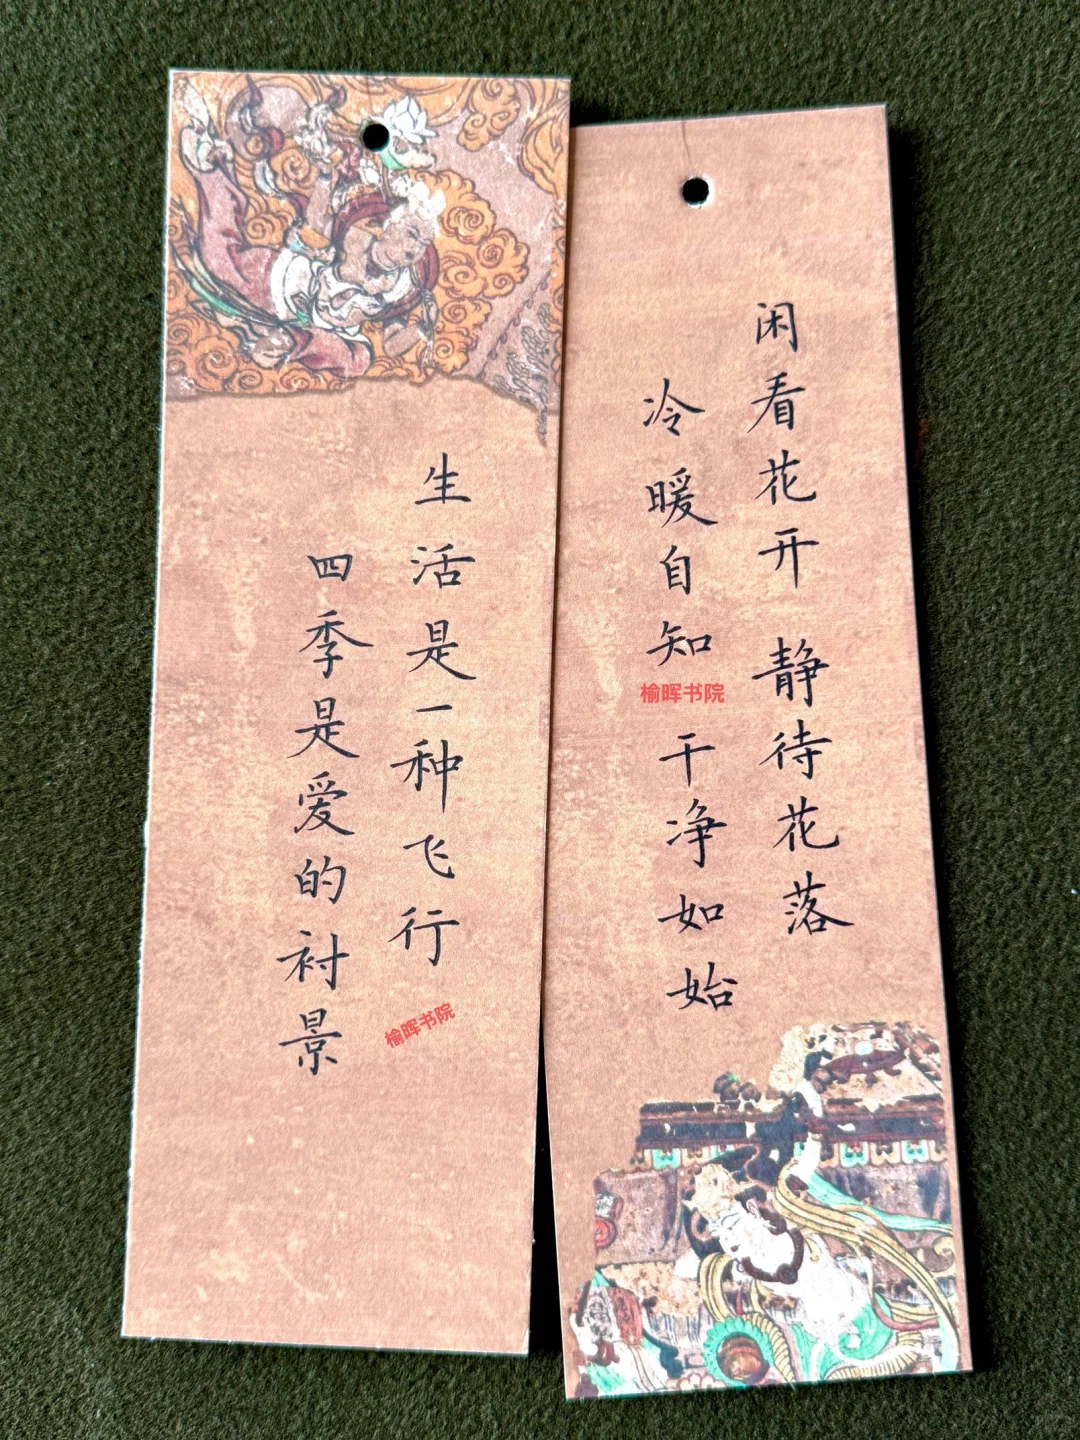 生活是一种飞行
四季是爱的衬景
榆晖书院
闲看花开 静待花落
冷暖自知 干净如始
榆晖书院